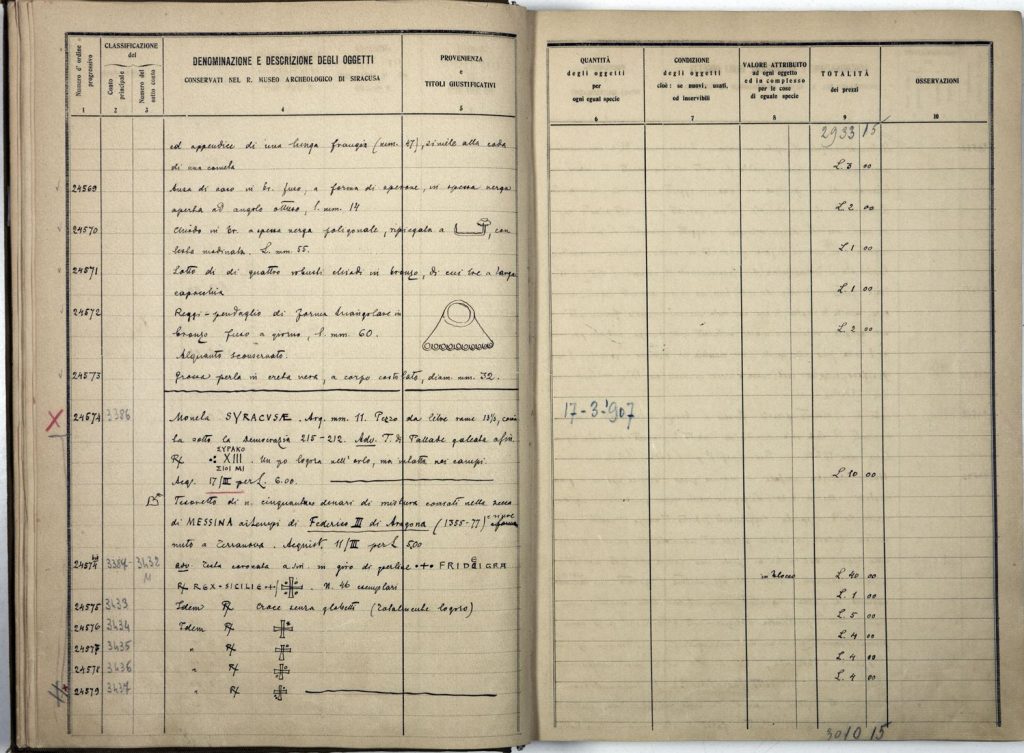 Numero d'ordine progressivo
CLASSIFICAZIONE
del
Conto principale
Numero del sotto conto
DENOMINAZIONE E DESCRIZIONE DEGLI OGGETTI
CONSERVATI NEL R. MUSEO ARCHEOLOGICO DI SIRACUSA
PROVENIENZA
e
TITOLI GIUSTIFICATIVI
1 2 3 4 5
ed appendice di una lunga frangia (mm. 47), simile alla coda
di una cometa
24569 Ansa di vaso in br. fuso, a forma di sperone, in spessa verga
aperta ad angolo ottuso, l. mm. 14
24570 Chiodo in br. a spessa verga poligonale, ripiegata a , con
testa modinata. L. mm. 55.
24571 Lotto di di quattro robusti chiodi in bronzo, di cui tre a larga
capocchia
24572 Reggi-pendaglio di forma triangolare in
bronzo fuso a giorno, l. mm. 60.
Alquanto sconservato.
24573 Grossa perla in creta nera, a corpo costolato, diam. mm. 32.
X 24574 3386 Moneta SYRACVSÆ. Arg. mm. 11. Pezzo da
sotto la Democrazia 215-212. Adv. T. di Pallade galeata a sin.
ΣΥΡΑΚΟ
R/ XIII . Un po logora nell'orlo, ma intatta nei campi.
ΣΙΟΙ
Acq. 17/III per L. 6.00.
Tesoretto di n. cinquantun denari di mistura coniati nella zecca
di MESSINA ai tempi di Federico III di Aragona (1355-77)
nuto a Terranova. Acquist. 11/III per L 5,00
24574 bis 3387- 3432 adv. Testa coronata a sin. in giro di perline + FRIDERI GRA
M R/ REX SICILIE . N. 46 esemplari
24575 3433 Idem R/ Croce senza globetti (Totalmente logoro)
24576 3434 Idem R/
24577 3435 " R/
24578 3436 " R/
24579 3437 " R/
QUANTITÀ
degli oggetti
per
ogni egual specie
CONDIZIONE
degli oggetti
cioè: se nuovi, usati,
od inservibili
VALORE ATTRIBUITO
ad ogni oggetto
ed in complesso
per le cose
di eguale specie
TOTALITÀ
dei prezzi
OSSERVAZIONI
6 7 8 9 10
2933 15
L. 3 00
L. 2 00
L. 1 00
L. 1 00
L. 2 00
17-3-907
L. 10 00
in blocco L. 40 00
L. 1 00
L. 5 00
L. 4 00
L. 4 00
L. 4 00
3010 15